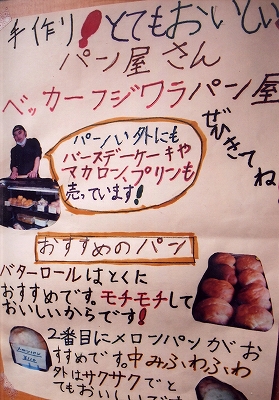 手作り！とてもおいしい
パン屋さん
ベッカーフジワラパン屋
ぜひきてね！
パンい外にも
バースデーケーキや
マカロン、プリンも
売っています！
おすすめのパン
バターロールはとくに
おすすめです。モチモチして
おいしいからです！
2番目にメロンパンがお
すすめです。中みふわふわ
外はサクサクでと
てもおいしいです
メロンパン